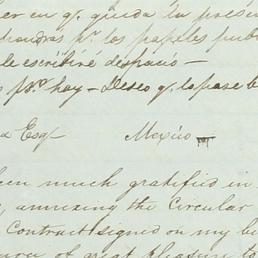 er en q.e queda la presen
pondrás p.r los papeles pub
le escribiré despacio —
s p.r hoy — Deseo q.e lo pase b
a Esq.r Mexico
een much gratified in
, annexing the Circular
Contract signed on my be
of great pleasure to